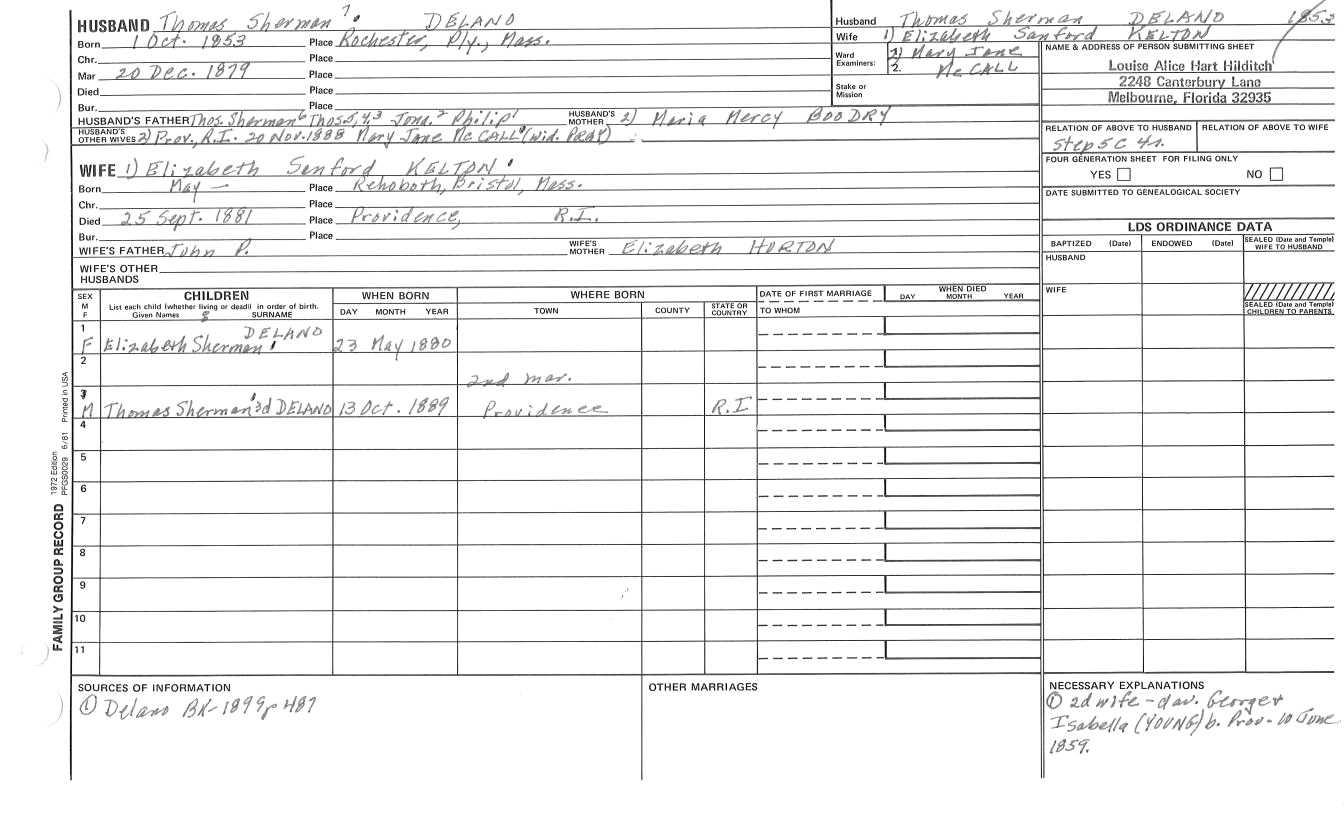 HUSBAND Thomas Sherman 7. DELANO
Born 1 Oct. 1853 Place Rochester, Ply., Mass.
Chr. Place
Mar 20 Dec. 1879 Place
Died Place
Bur. Place
HUSBAND'S FATHER Thos. Sherman 6 Thos. 5, 4, 3 Jona. 2 Philip 1 HUSBAND'S MOTHER 2) Maria Mercy BOODRY
HUSBAND'S OTHER WIVES 2) Prov., R.I. 20 Nov. 1888 Mary Jane McCALL (wid. PRAY)
WIFE 1) Elizabeth Senford KELTON
Born May — Place Rehoboth, Bristol, Mass.
Chr. Place
Died 25 Sept. 1881 Place Providence, R.I.
Bur. Place
WIFE'S FATHER John P. WIFE'S MOTHER Elizabeth HORTON
WIFE'S OTHER HUSBANDS
Husband Thomas Sherman DELANO 1853
Wife 1) Elizabeth Sanford KELTON
Ward Examiners: 1. 2) Mary Jane
2. McCALL
Stake or Mission
NAME & ADDRESS OF PERSON SUBMITTING SHEET
Louise Alice Hart Hilditch
2248 Canterbury Lane
Melbourne, Florida 32935
RELATION OF ABOVE TO HUSBAND RELATION OF ABOVE TO WIFE
Step 5C 4r.
FOUR GENERATION SHEET FOR FILING ONLY
YES NO
DATE SUBMITTED TO GENEALOGICAL SOCIETY
LDS ORDINANCE DATA
BAPTIZED (Date) ENDOWED (Date) SEALED (Date and Temple) WIFE TO HUSBAND
HUSBAND
WIFE
SEALED (Date and Temple) CHILDREN TO PARENTS
SEX M F
CHILDREN
List each child (whether living or dead) in order of birth.
Given Names 8 SURNAME
WHEN BORN
DAY MONTH YEAR
WHERE BORN
TOWN COUNTY STATE OR COUNTRY
DATE OF FIRST MARRIAGE
TO WHOM
WHEN DIED
DAY MONTH YEAR
1 F Elizabeth Sherman DELANO 23 May 1880
2
2nd mar.
3 M Thomas Sherman 3d DELANO 13 Oct. 1889 Providence R.I
4
5
6
7
8
9
10
11
SOURCES OF INFORMATION
① Delano BK-1899 p 487
OTHER MARRIAGES
NECESSARY EXPLANATIONS
① 2d wife - dau. George +
Isabella (YOUNG) b. Prov - 10 June
1859.
FAMILY GROUP RECORD 1972 Edition PFGS0029 6/81 Printed in USA